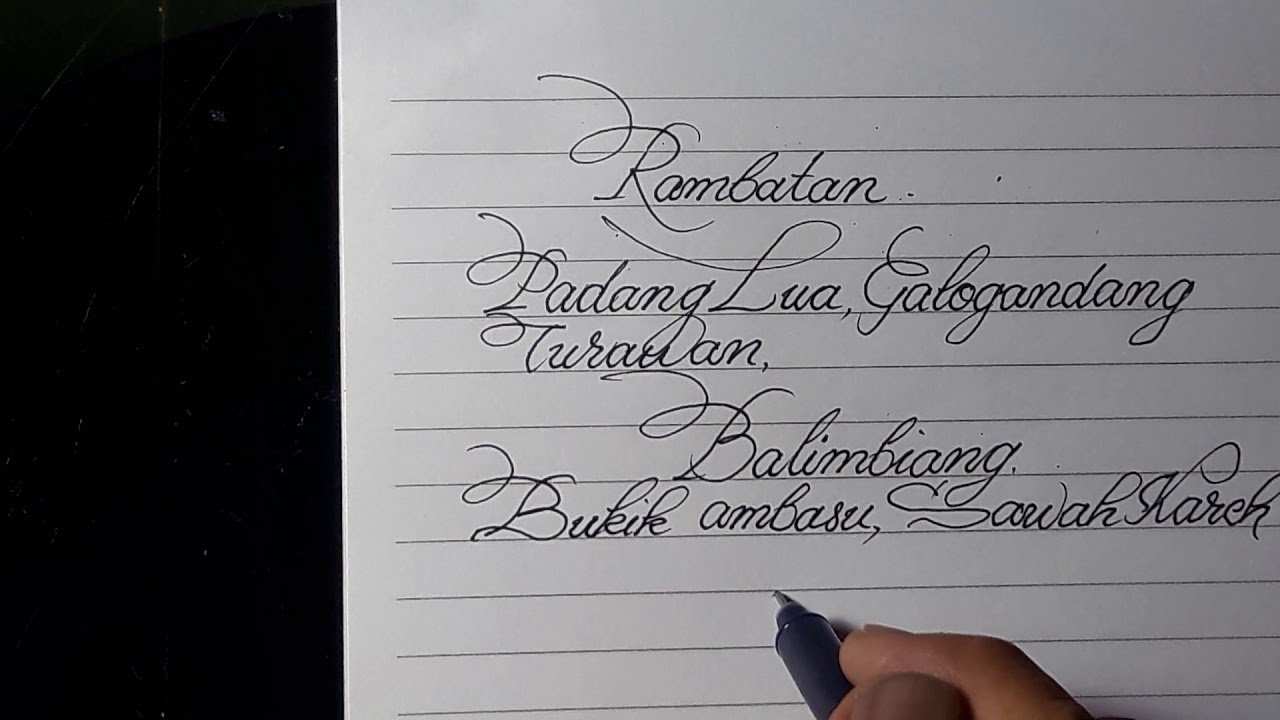 Rambatan.
Padang Lua, Galogandang
Turawan,
Balimbiang.
Bukik ambasu, Sawah Kareh